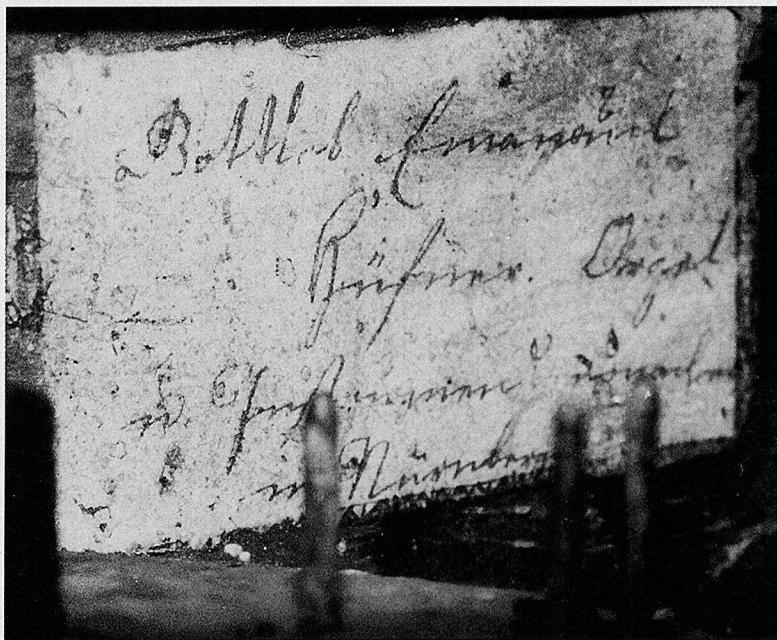 Gottlieb Emanuel
Rüfner. Orgel
u. Instrumenten
in Nürnberg